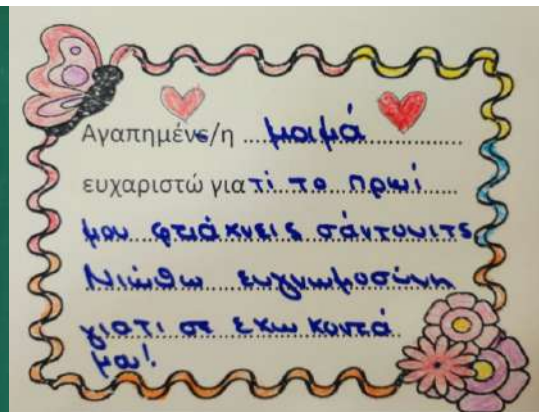 Αγαπημένε/η μαμά
ευχαριστώ για τί το πρωί
μου φτιάχνεις σάντουιτς
Νιώθω ευγνωμοσύνη
γιατι σε έχω κοντά
μου!